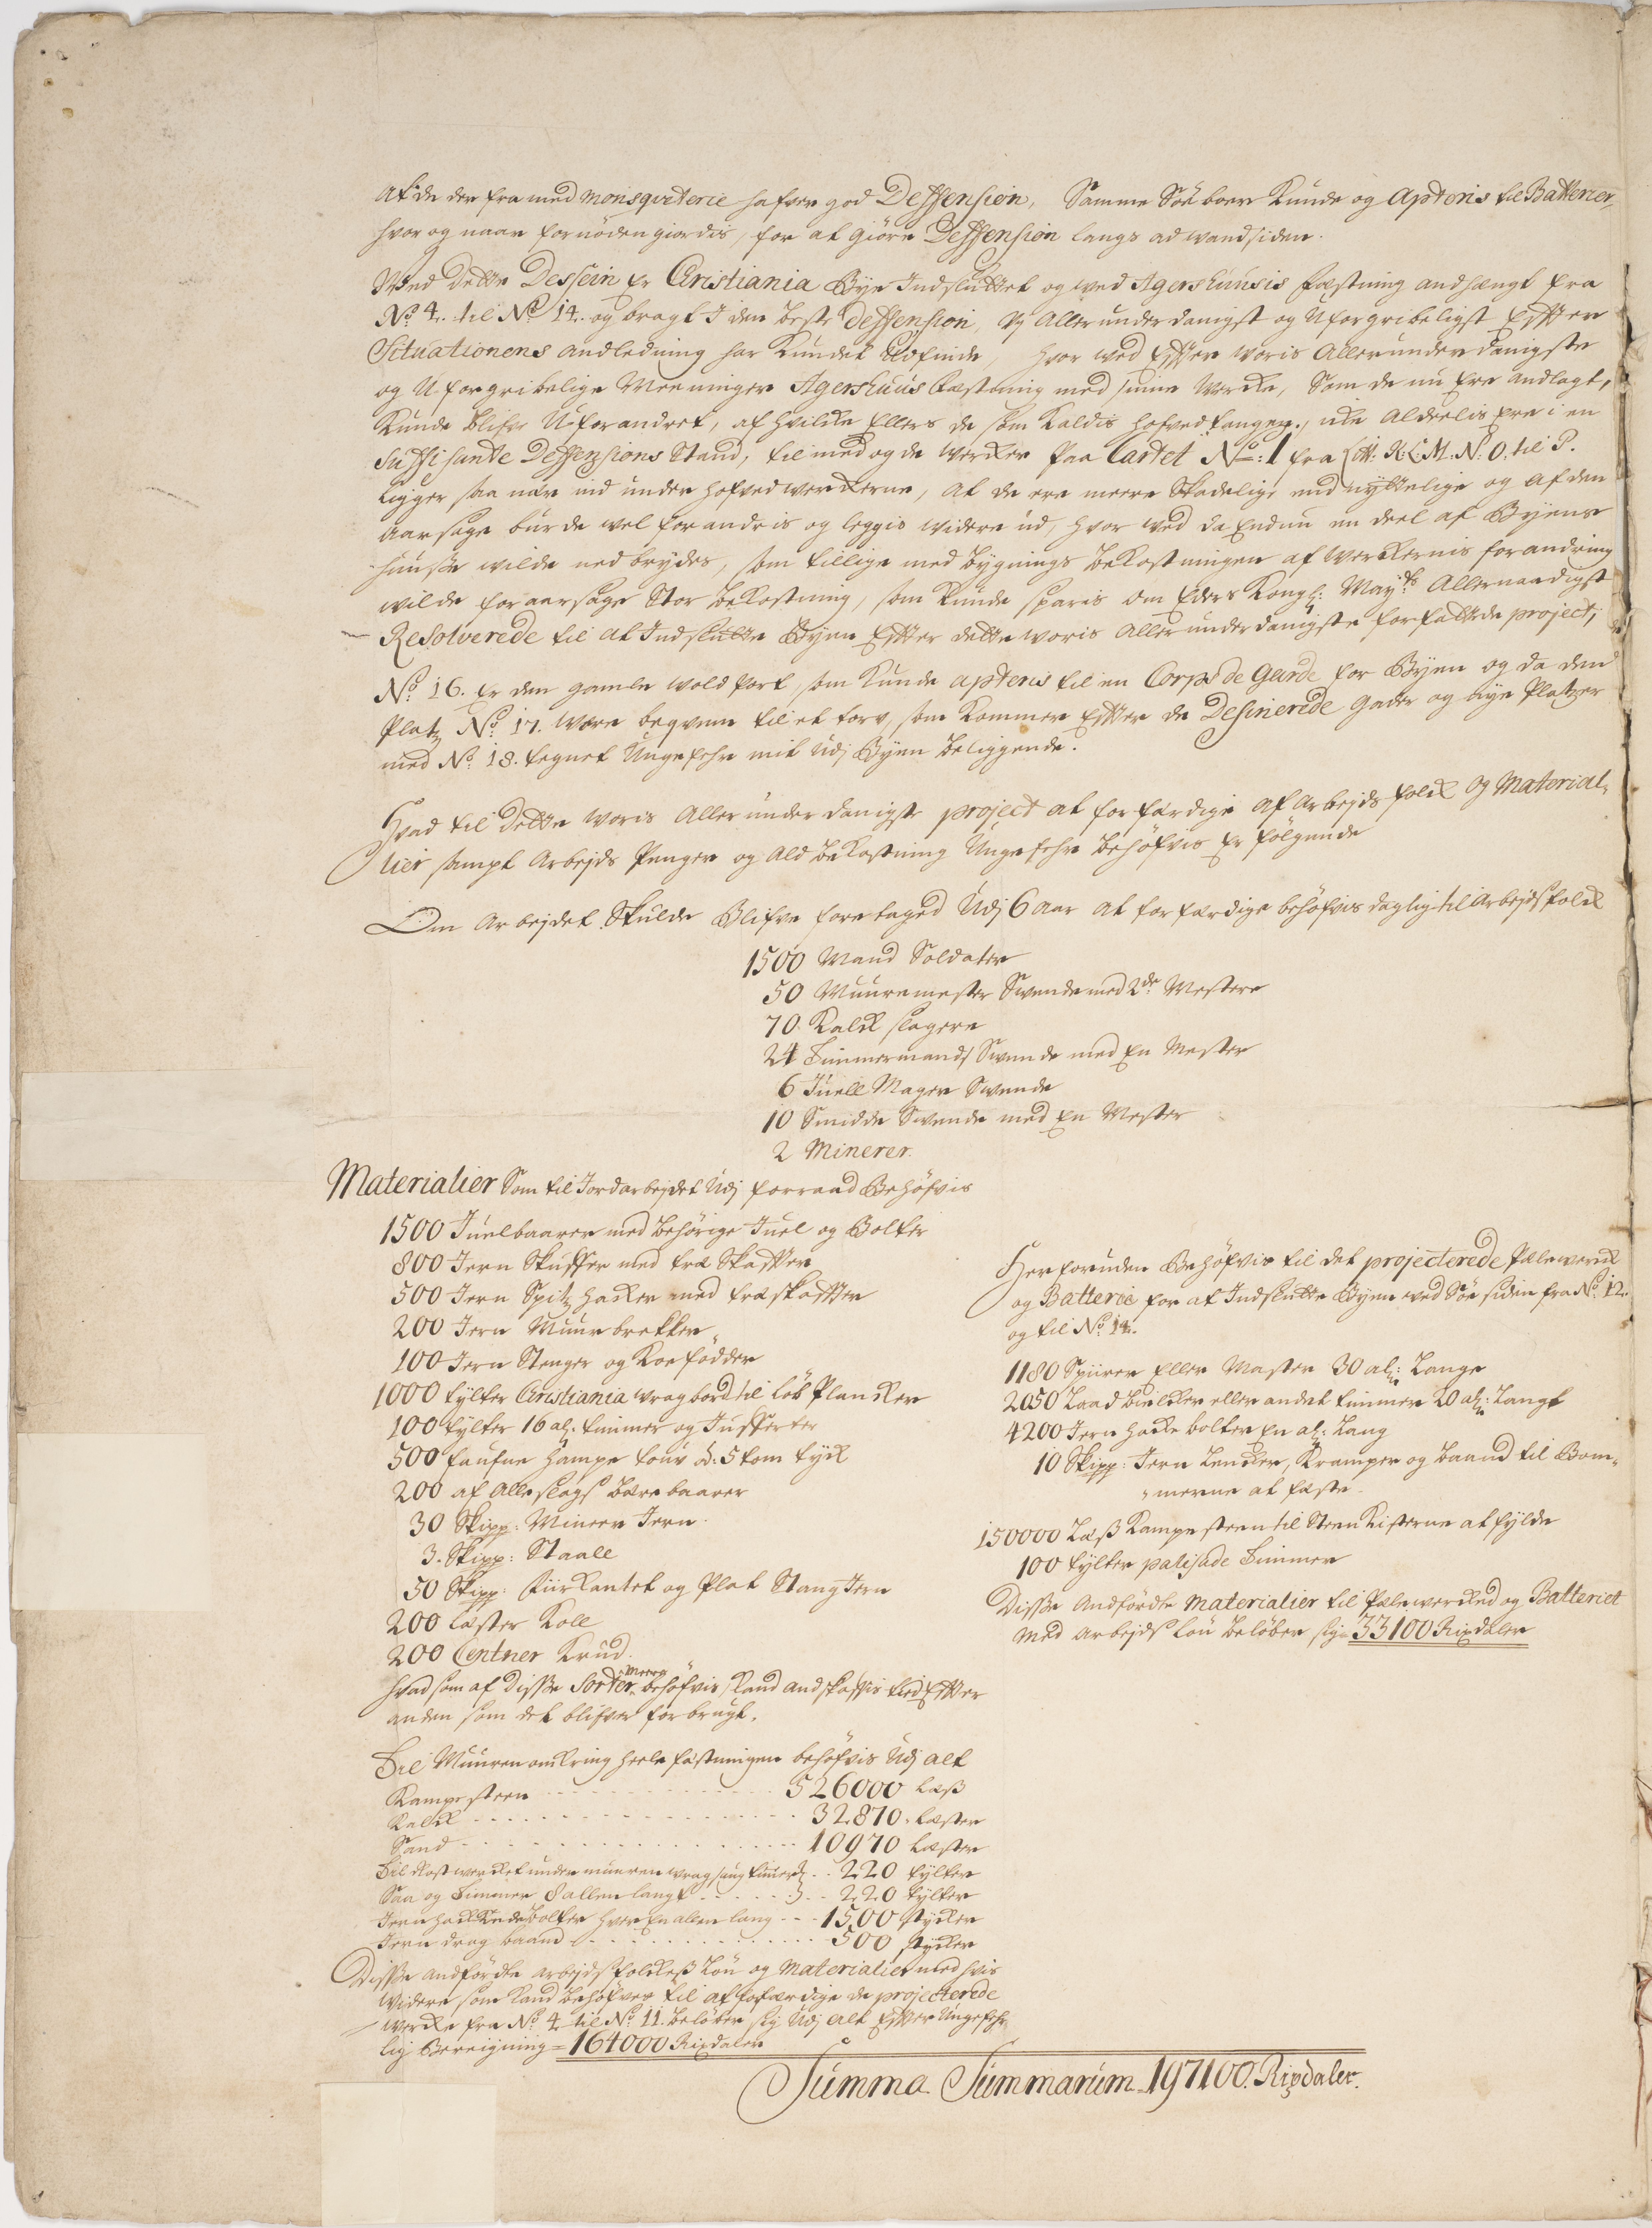 at de der fra med Mousqveterie hafver god Deffension, Samme Söeboer kunde og Apteris til Batterier,
hvor og naar fornöden giordis, for at giöre Deffension langs ad Wandsiden.
Med dette Dessein er Christiania Bye Indsluttet og ved Agershuusis Fæstning andhængt fra
No. 4. til No. 14. og bragt I den beste Deffension, vj Allerunderdanigst og Uforgribeligst Effter
Situationens andledning har kundet Udfinde, hvor ved Effter Woris Allerunderdanigste
og Uforgribelige Meeninger Agershuus Fæstning med sinne Wercke, Som de nu ere andlagt,
kunde blifve Uforandret, af hvilke Ellers de som kaldis Hofvedtanger, icke Aldeelis ere i en
Suffisante Deffensions Stand, til med og de Wercker paa Cartet No. 1 fra Litt: K: L: M: N: O: til P.
ligger saa nær ind under Hofvedwerckerne, at de ere meere Skadelige end nyttelige og af den
aarsage burde vel forandris og leggis videre ud, hvor ved da Endnu en deel af Byens
Huusse vilde nedbrydes, som tillige med bygnings bekostningen af Werckernis forandring
vilde foraarsage Stor bekostning, som kunde sparis om Eders Kongl: Mayts Allernaadigst
Resolverede til at Indslutte Byen Effter dette Woris Allerunderdanigste forfattede project;
No. 16. Er den gamle Vold Port, som kunde apteris til en Corps de Garde for Byen og da den
Platz No. 17. Være beqvem til et torv, som kommer Effter de Desinerede gader og nye Platzer
med No. 18. tegnet Ungefehr mit Udj Byen beliggende.
Hvad til dette Woris Allerunderdanigste project at forfærdige af Arbejds folck og Material,,
lier sampt Arbejds Penger og Ald bekostning Ungefehr behöfvis Er fölgende
Om Arbejdet Skulde Blifve foretaged Udj 6 Aar at forfærdige behöfvis daglig til Arbejdsfolck
1500 Mand Soldater
50 Muuremester Svende med 2de Mestere
70 Kalck slagere
24 Timmermands Svende med En Mester
6 Juell Mager Svende
10 Smidde Svende med En Mester
2 Minerer.
Materialier Som til Jordarbejdet Udj forraad Behöfvis
1500 Juelbaarer med behörige Juel og Bolter
800 Jern Skuffer med træ Skaffter
500 Jern Spitz Hacker med træ skaffter
200 Jern Muur brekker
100 Jern Stenger og Koefödder
1000 tylter Christiania vragbord til löb Plancker
100 tylter 16 al: timmer og Jufferter
500 faufne Hampe touv á: 5 tom tyck
200 af Alle slags bære baarer
30 Skipp: Mineer Jern.
3. Skipp: Staale
50 Skipp: Fiirkantet og Plat Stang Jern
200 Læster Koll
200 Centner Krud.
Hvad som af disse Sorter Meere behöfvis, kand andskaffis tid Effter
anden som det blifver forbrugt.
Til Muuren omkring heele Fæstningen behöfvis Udj alt
Kampesteen - - - - 526000 Læs
Kalck - - - - 32870. Læster
Sand - - - - 10970 Læster
Til Rostwercket under muuren Vrag saug timmer - - 220 tylter
Saa og Timmer 8 allen langt - - - - 220 tylter
Jern Hackede bolter hver En allen lang - - - 1500 stycker
Jern drag baand - - - - 500 stycker
Disse andförte Arbejdsfolckes Lön og Materialier med hvis
videre som kand behöfves til at forfærdige de projecterede
Wercke fra No. 4 til No. 11. belöber sig Udj alt Effter Ungefehr,,
lig Beregning = 164000 Rixdaler
Her foruden Behöfvis til det projecterede Pælewerck
og Batterie for at Indslutte Byen ved Söe siden fra No. 12.
og til No. 14.
1180 Spiirer Eller Master 30 al: Lange
2050 Laad bielcker eller andet timmer 20 al: langt
4200 Jern Hacke bolter En al: Lang
10 Skipp: Jern Lencker, Kramper og baand til Bom,,
,,merne at fæste.
150000 Læs Kampesteen til Steen Kisterne at fylde
100 tylter palisade Timmer
Disse Andförte Materialier til Pælewercked og Batteriet
med Arbejds lön beløber sig 33100 Rixdaler
Summa Summarum 197100. Rixdaler.